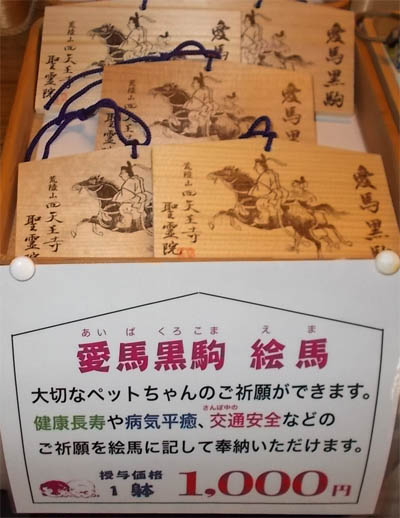 愛馬黒駒
荒陵山 四天王寺
聖霊院
愛馬黒駒
荒陵山 四天王寺
聖霊院
愛馬黒駒
荒陵山 四天王寺
聖霊院
あいば くろこま えま
愛馬黒駒 絵馬
大切なペットちゃんのご祈願ができます。
さんぽ中の
健康長寿や病気平癒、交通安全などの
ご祈願を絵馬に記して奉納いただけます。
授与価格
1躰 1,000円